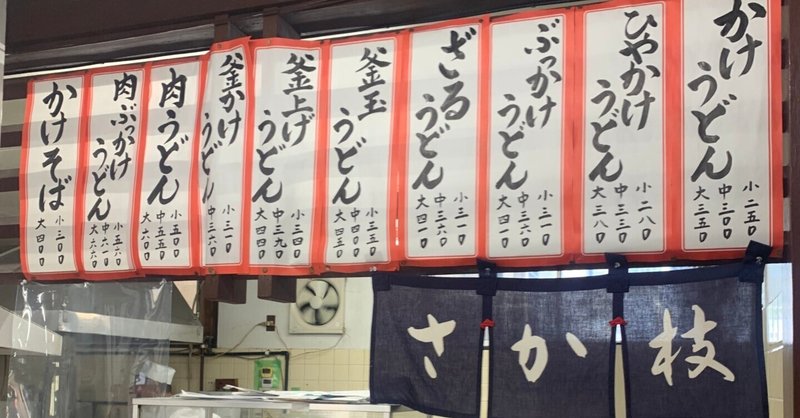 かけ
うどん
小二五〇
中三〇〇
大三五〇
ひやかけ
うどん
小二八〇
中三三〇
大三八〇
ぶっかけ
うどん
小三一〇
中三六〇
大四一〇
ざる
うどん
小三一〇
中三六〇
大四一〇
釜玉
うどん
小三五〇
中四〇〇
大四五〇
釜上げ
うどん
小三四〇
中三九〇
大四四〇
釜かけ
うどん
小三一〇
中三六〇
肉うどん
小五〇〇
中五五〇
大六〇〇
肉ぶっかけ
うどん
小五六〇
中六一〇
大六六〇
かけそば
小三〇〇
大四〇〇
さか枝